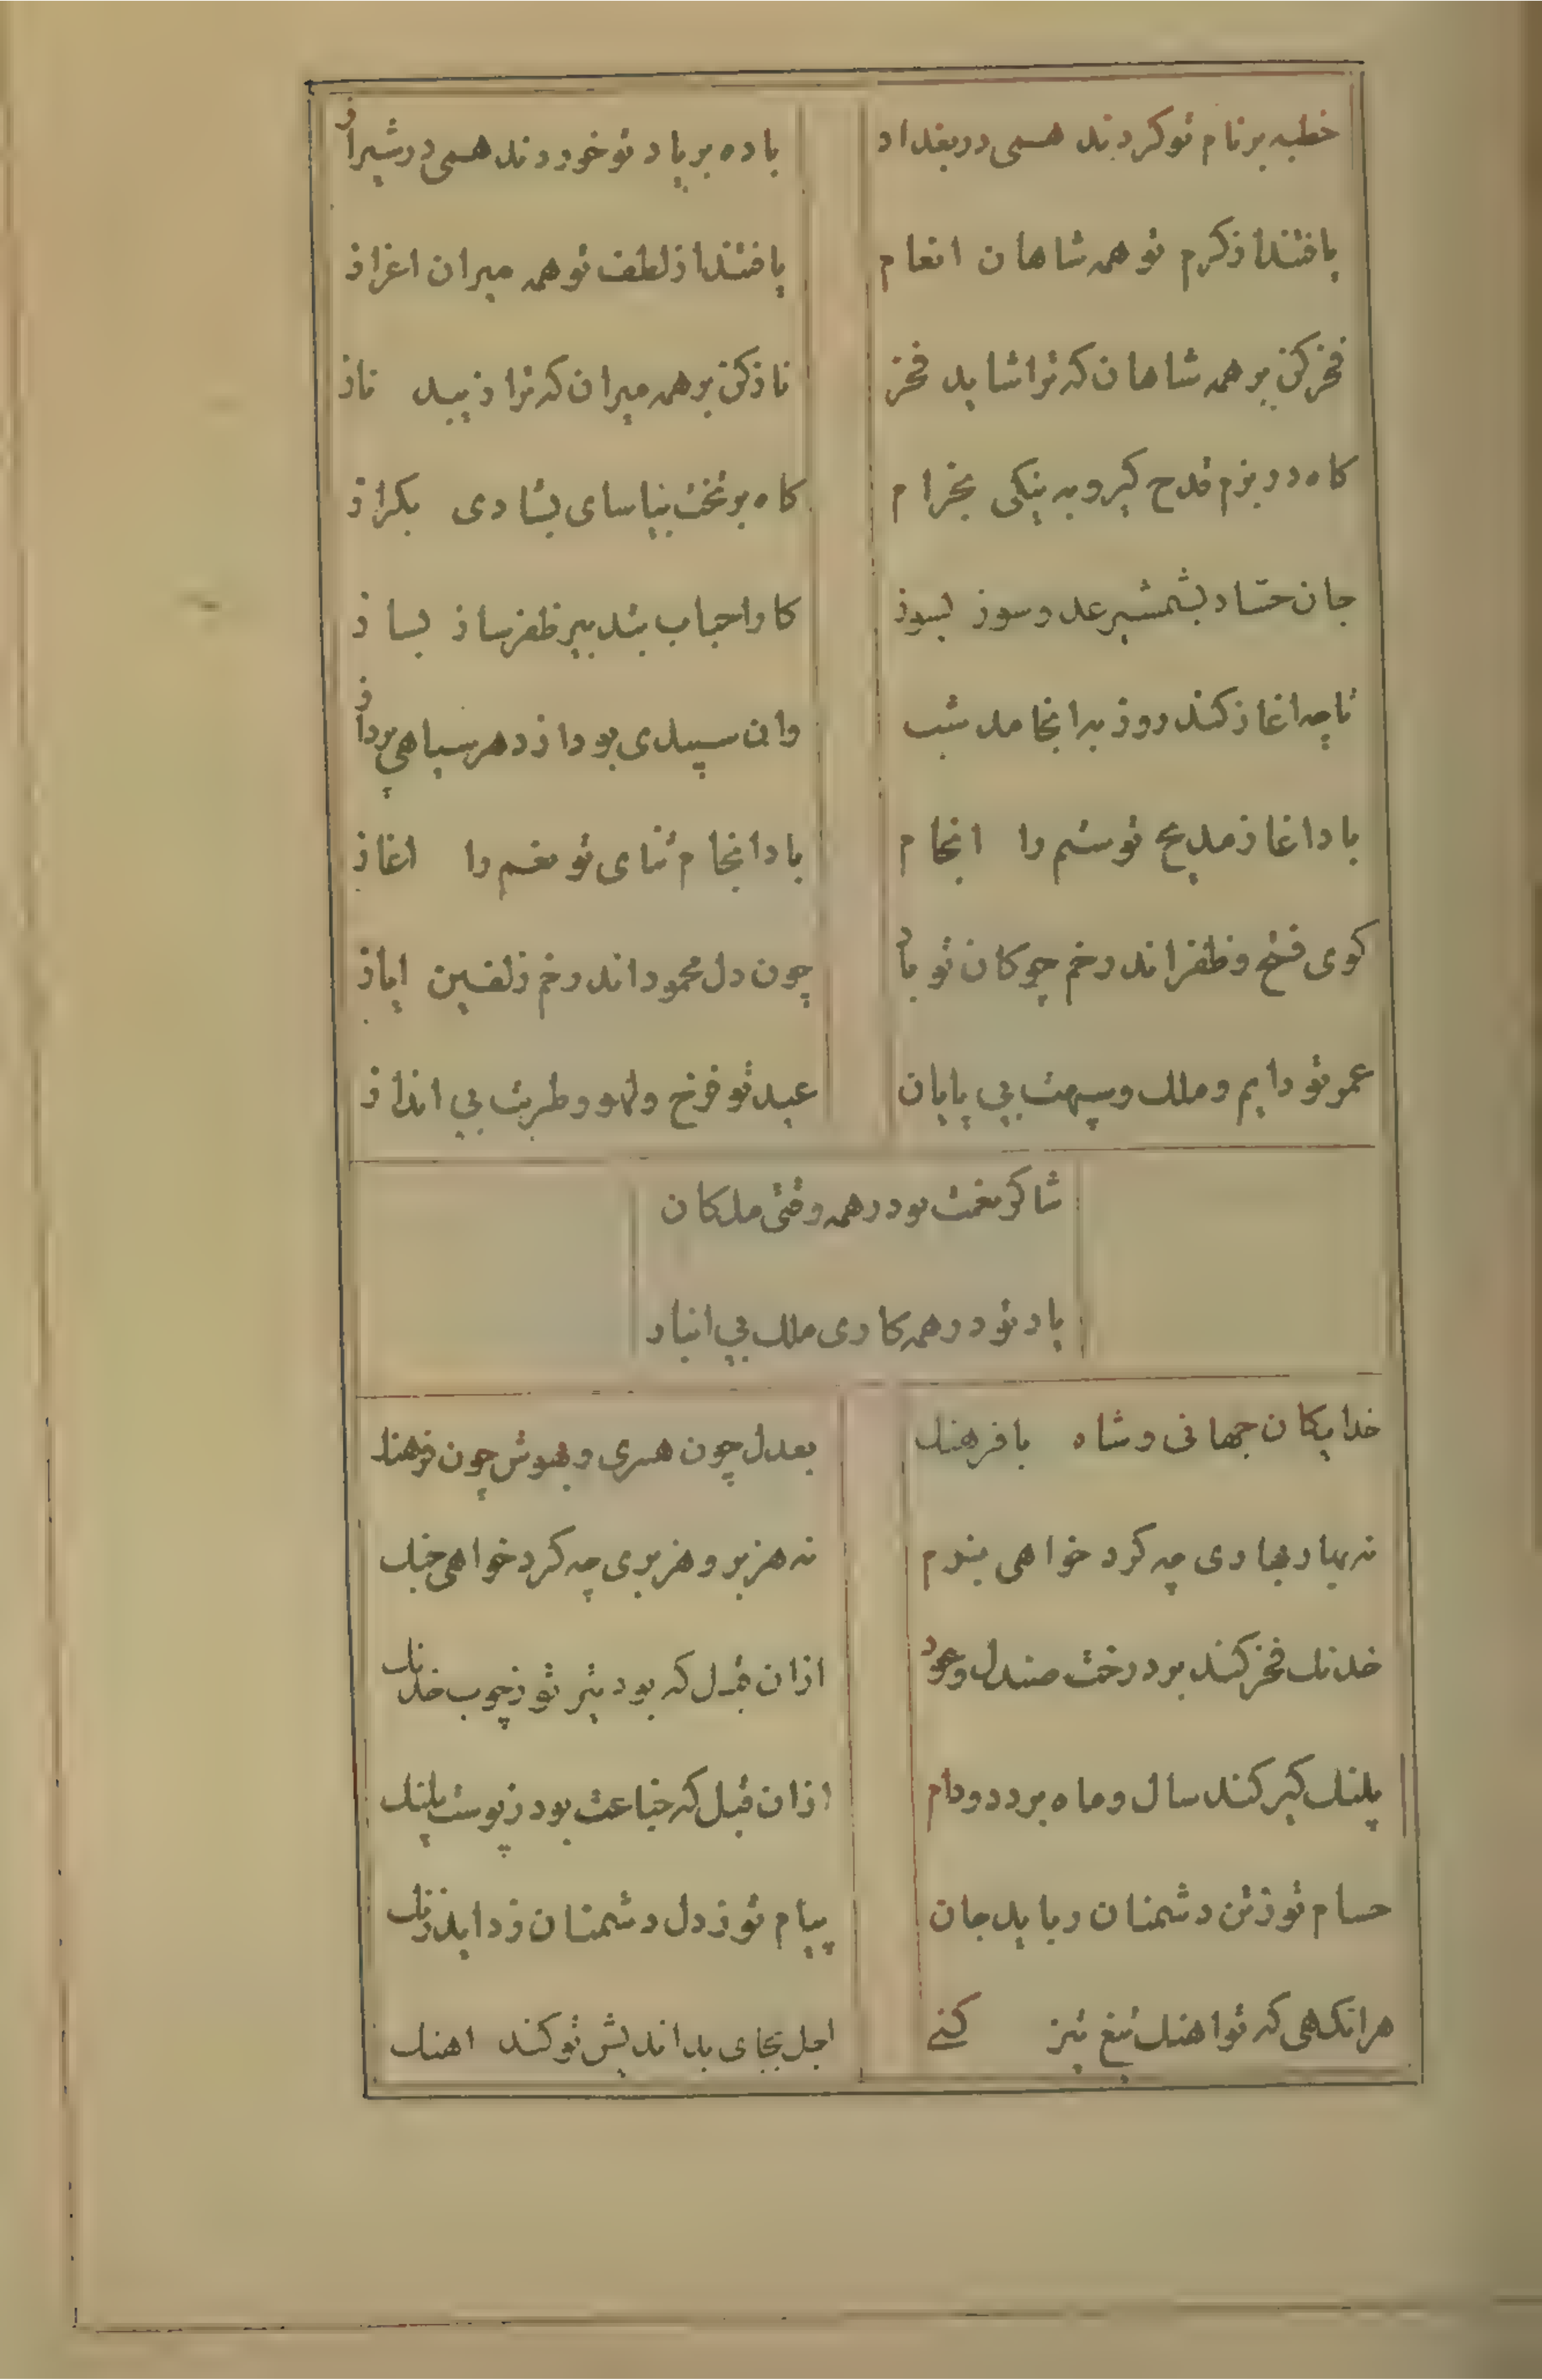 خطبه بر نام تو کردند همی در بغداد
باده بر یاد تو خوردند همی در شیراز
یافتند از کرم تو همه شاهان انعام
یافتند از لطف تو همه میران اعزاز
فخر کن بر همه شاهان که ترا شاید فخر
ناز کن بر همه میران که ترا زیبد ناز
کاه در بزم قدح کیر و به نیکی بخرام
کاه بر تخت بیاسای بشادی بکراز
جان حساد بشمشیر عدو سوز بسوز
کار احباب بتدبیر ظفر ساز بساز
تا چه اغاز کند روز به انجامد شب
وان سپیدی بود از دهر سیاهی پرداز
باد اغاز مدیح تو ستم را انجام
باد انجام ثنای تو نعم را اغاز
کوی فتح و ظفر اندر خم چوکان تو باد
چون دل محمود اندر خم زلفین ایاز
عمر تو دایم و ملک و سپهت بی پایان
عید تو فرخ و لهو و طربت بی انداز
شاکر نعمت بود در همه وقتی ملکان
یاد تو در همه کاری ملک بی انباز
خدایکان جهانی و شاه با فرهنک
بعدل چون هری و بهوش چون فرهنک
نه بهار و بهاری چه کرد خواهی بزم
نه هزبر و هزبری چه کرد خواهی جنک
خدنک فخر کند بر درخت صندل و عود
ازان قبل که بود تیر تو ز چوب خدنک
پلنک کبر کند سال و ماه بر دد و دام
ازان قبل که جناغت بود ز پوست پلنک
حسام تو ز تن دشمنان رباید جان
پیام تو ز دل دشمنان زداید زنک
هر انکهی که تو اهنک تیغ تیز کنی
اجل بجای بداندیش تو کند اهنک